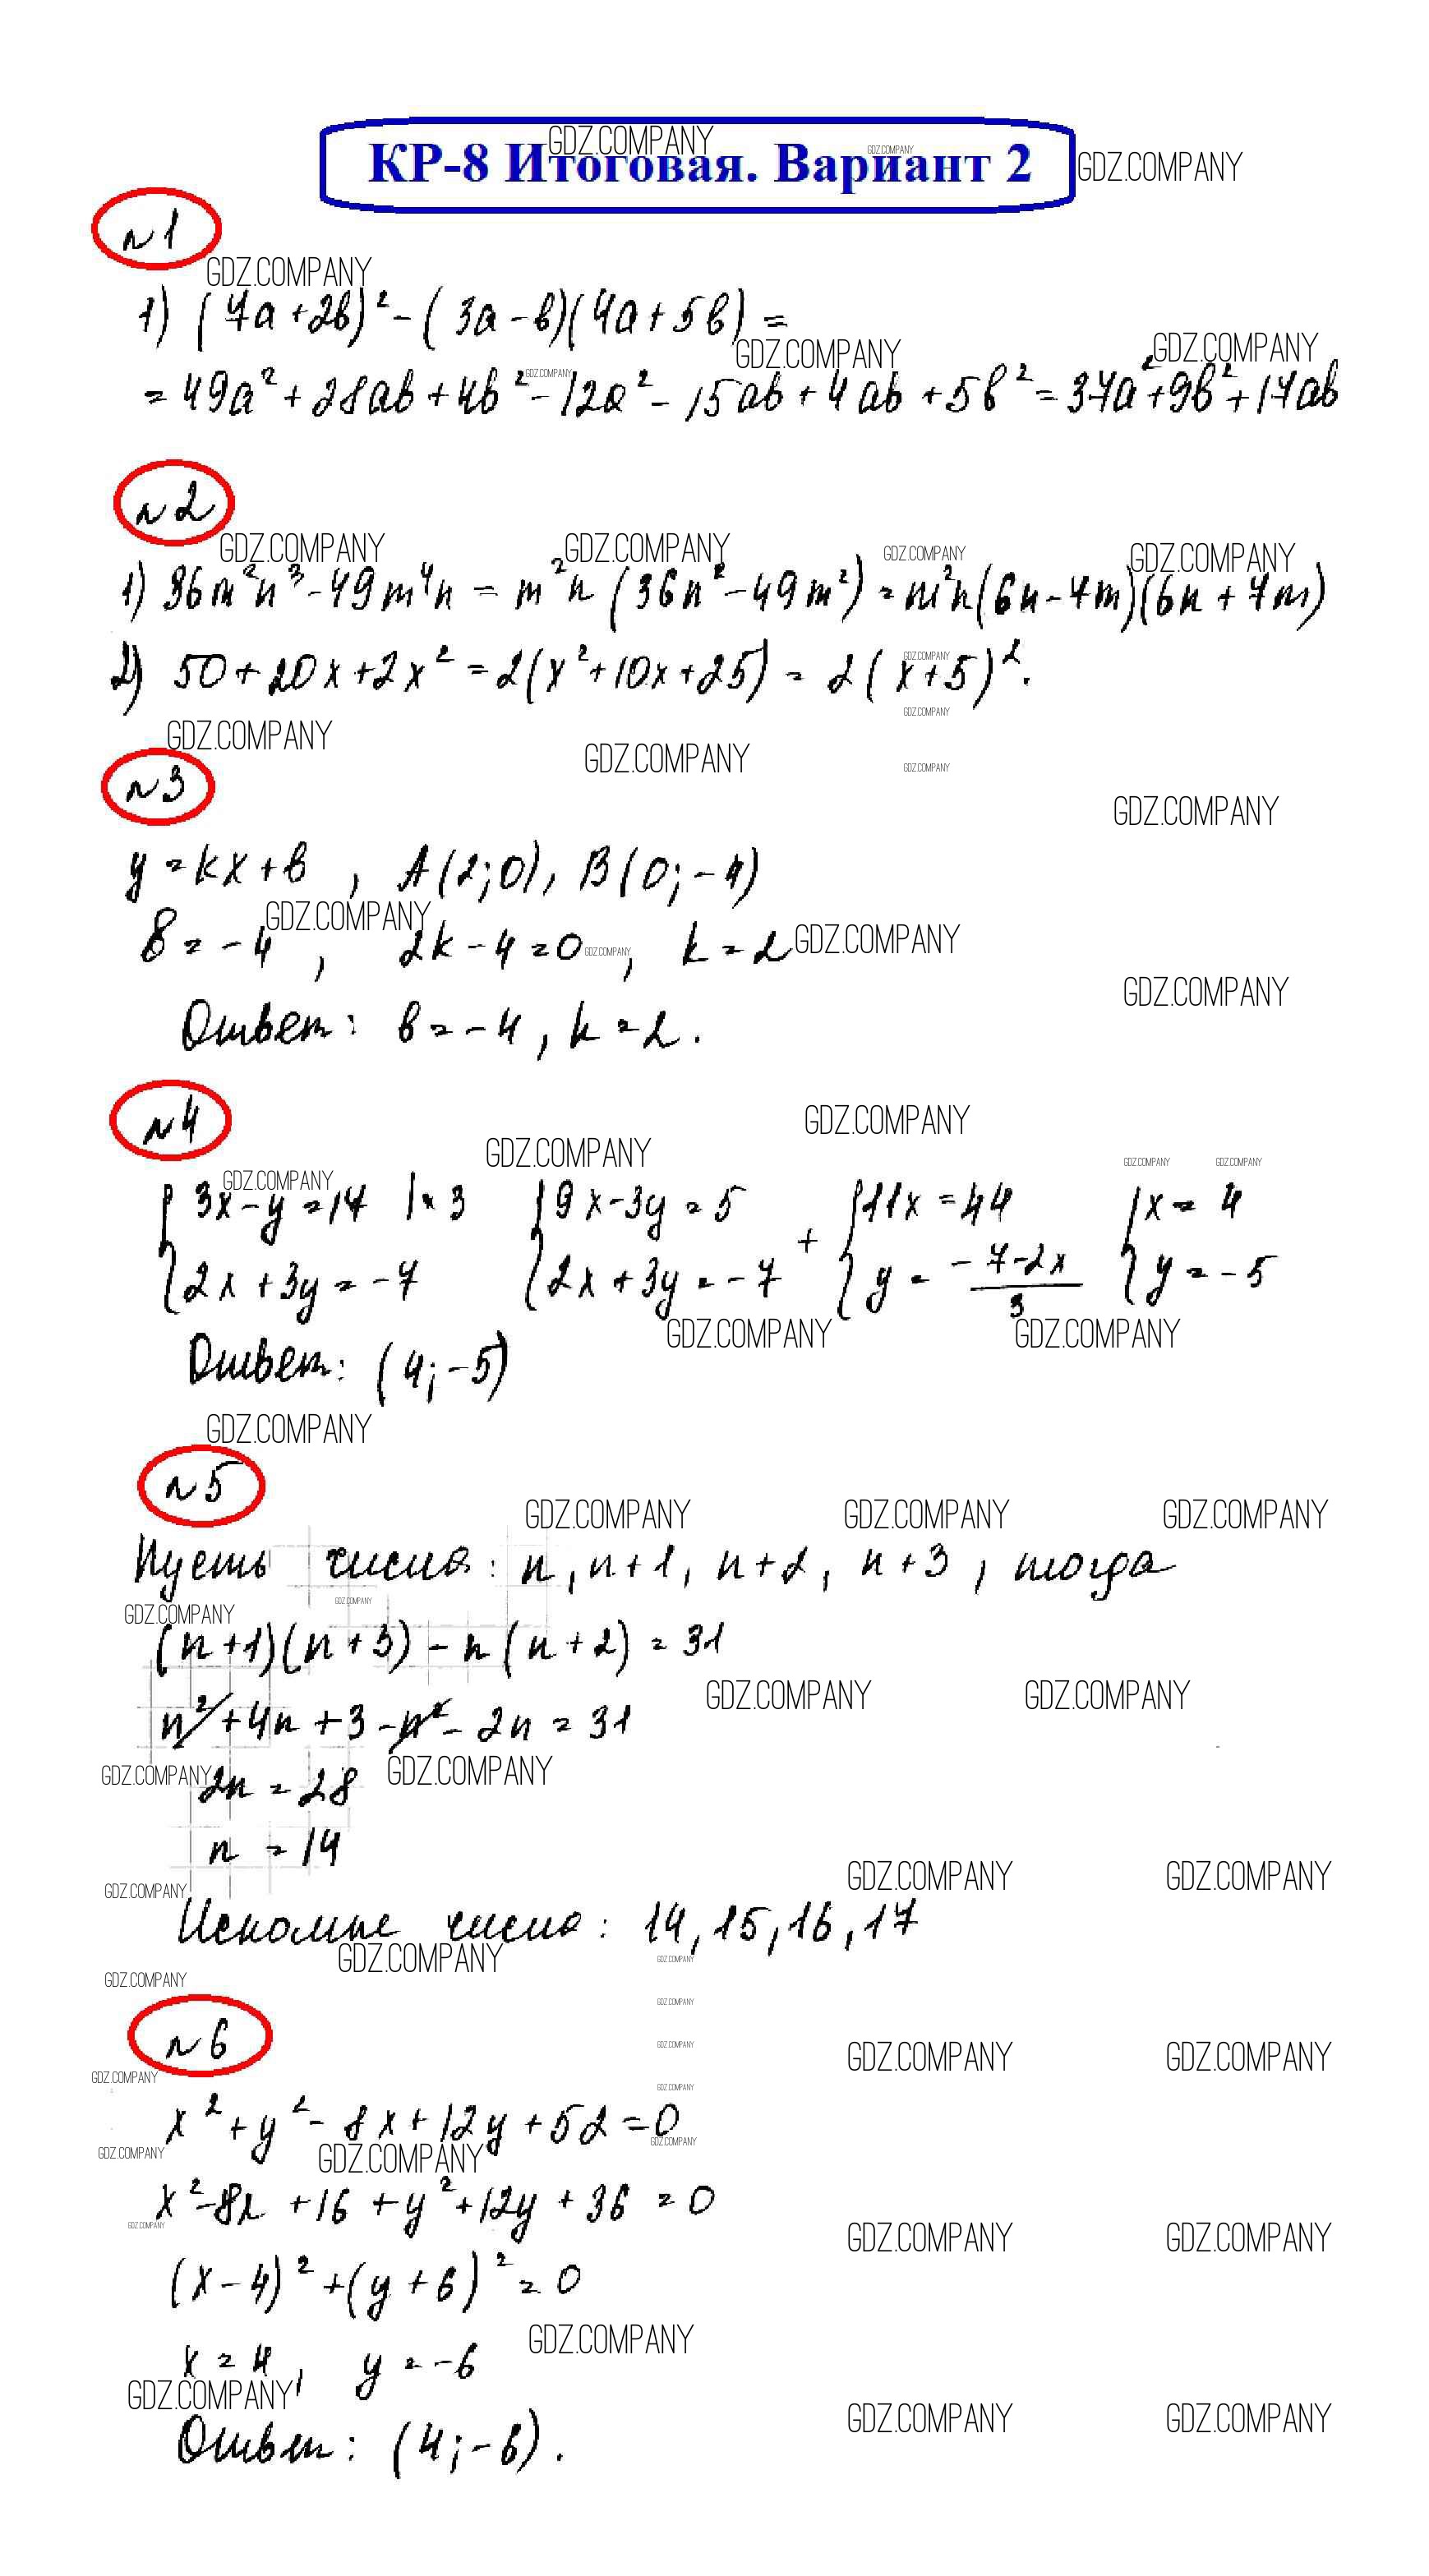 GDZ.COMPANY
КР-8 Итоговая. Вариант 2
№1
1) (7a+2b)² - (3a-b)(4a+5b) =
= 49a² + 28ab + 4b² - 12a² - 15ab + 4ab + 5b² = 37a² + 9b² + 17ab
№2
1) 36m²n³ - 49m⁴n = m²n (36n² - 49m²) = m²n(6n-7m)(6n+7m)
2) 50 + 20x + 2x² = 2(x² + 10x + 25) = 2(x+5)².
№3
y = kx + b, A(2;0), B(0;-4)
b = -4, 2k - 4 = 0, k = 2
Ответ: b = -4, k = 2.
№4
{3x - y = 17 |×3 {9x - 3y = 5 + {11x = 44 {x = 4
{2x + 3y = -7 {2x + 3y = -7 {y = (-7-2x)/3 {y = -5
Ответ: (4;-5)
№5
Пусть числа: n, n+1, n+2, n+3, тогда
(n+1)(n+3) - n(n+2) = 31
n² + 4n + 3 - n² - 2n = 31
2n = 28
n = 14
Искомые числа: 14, 15, 16, 17
№6
x² + y² - 8x + 12y + 52 = 0
x² - 8x + 16 + y² + 12y + 36 = 0
(x-4)² + (y+6)² = 0
x = 4, y = -6
Ответ: (4;-6).